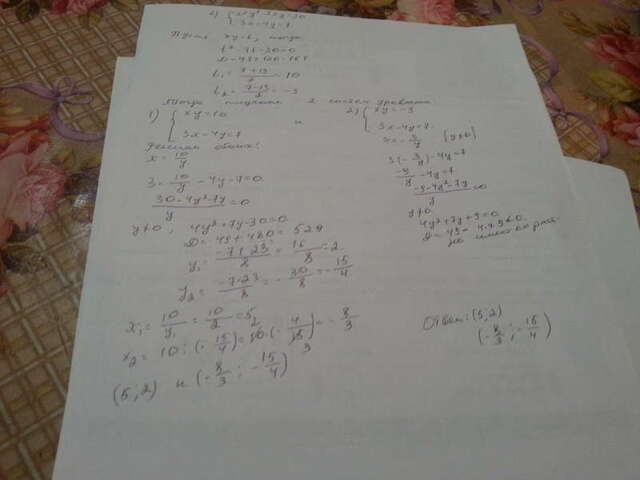 3x-4y=7
Пусть xy=t, тогда
t²-7t-30=0
D=49+120=169
t₁=(7+13)/2=10
t₂=(7-13)/2=-3
Тогда получим 2 системы
1) {xy=10
3x-4y=7
и
x=10/y
3·10/y-4y-7=0
(30-4y²-7y)/y=0
y≠0, 4y²+7y-30=0
D=49+480=529
y₁=(-7+23)/8=16/8=2
y₂=(-7-23)/8=-30/8=-15/4
x₁=10/y₁=10/2=5
x₂=10:(-15/4)=10·(-4/15)=-8/3
(5;2) и (-8/3;-15/4)
2) {xy=-3
3x-4y=7
x=-3/y (y≠0)
3(-3/y)-4y=7
-9/y-4y=7
(-9-4y²-7y)/y=0
y≠0
4y²+7y+9=0
D=49-4·4·9<0
не имеет
Ответ: (5;2)
(-8/3;-15/4)